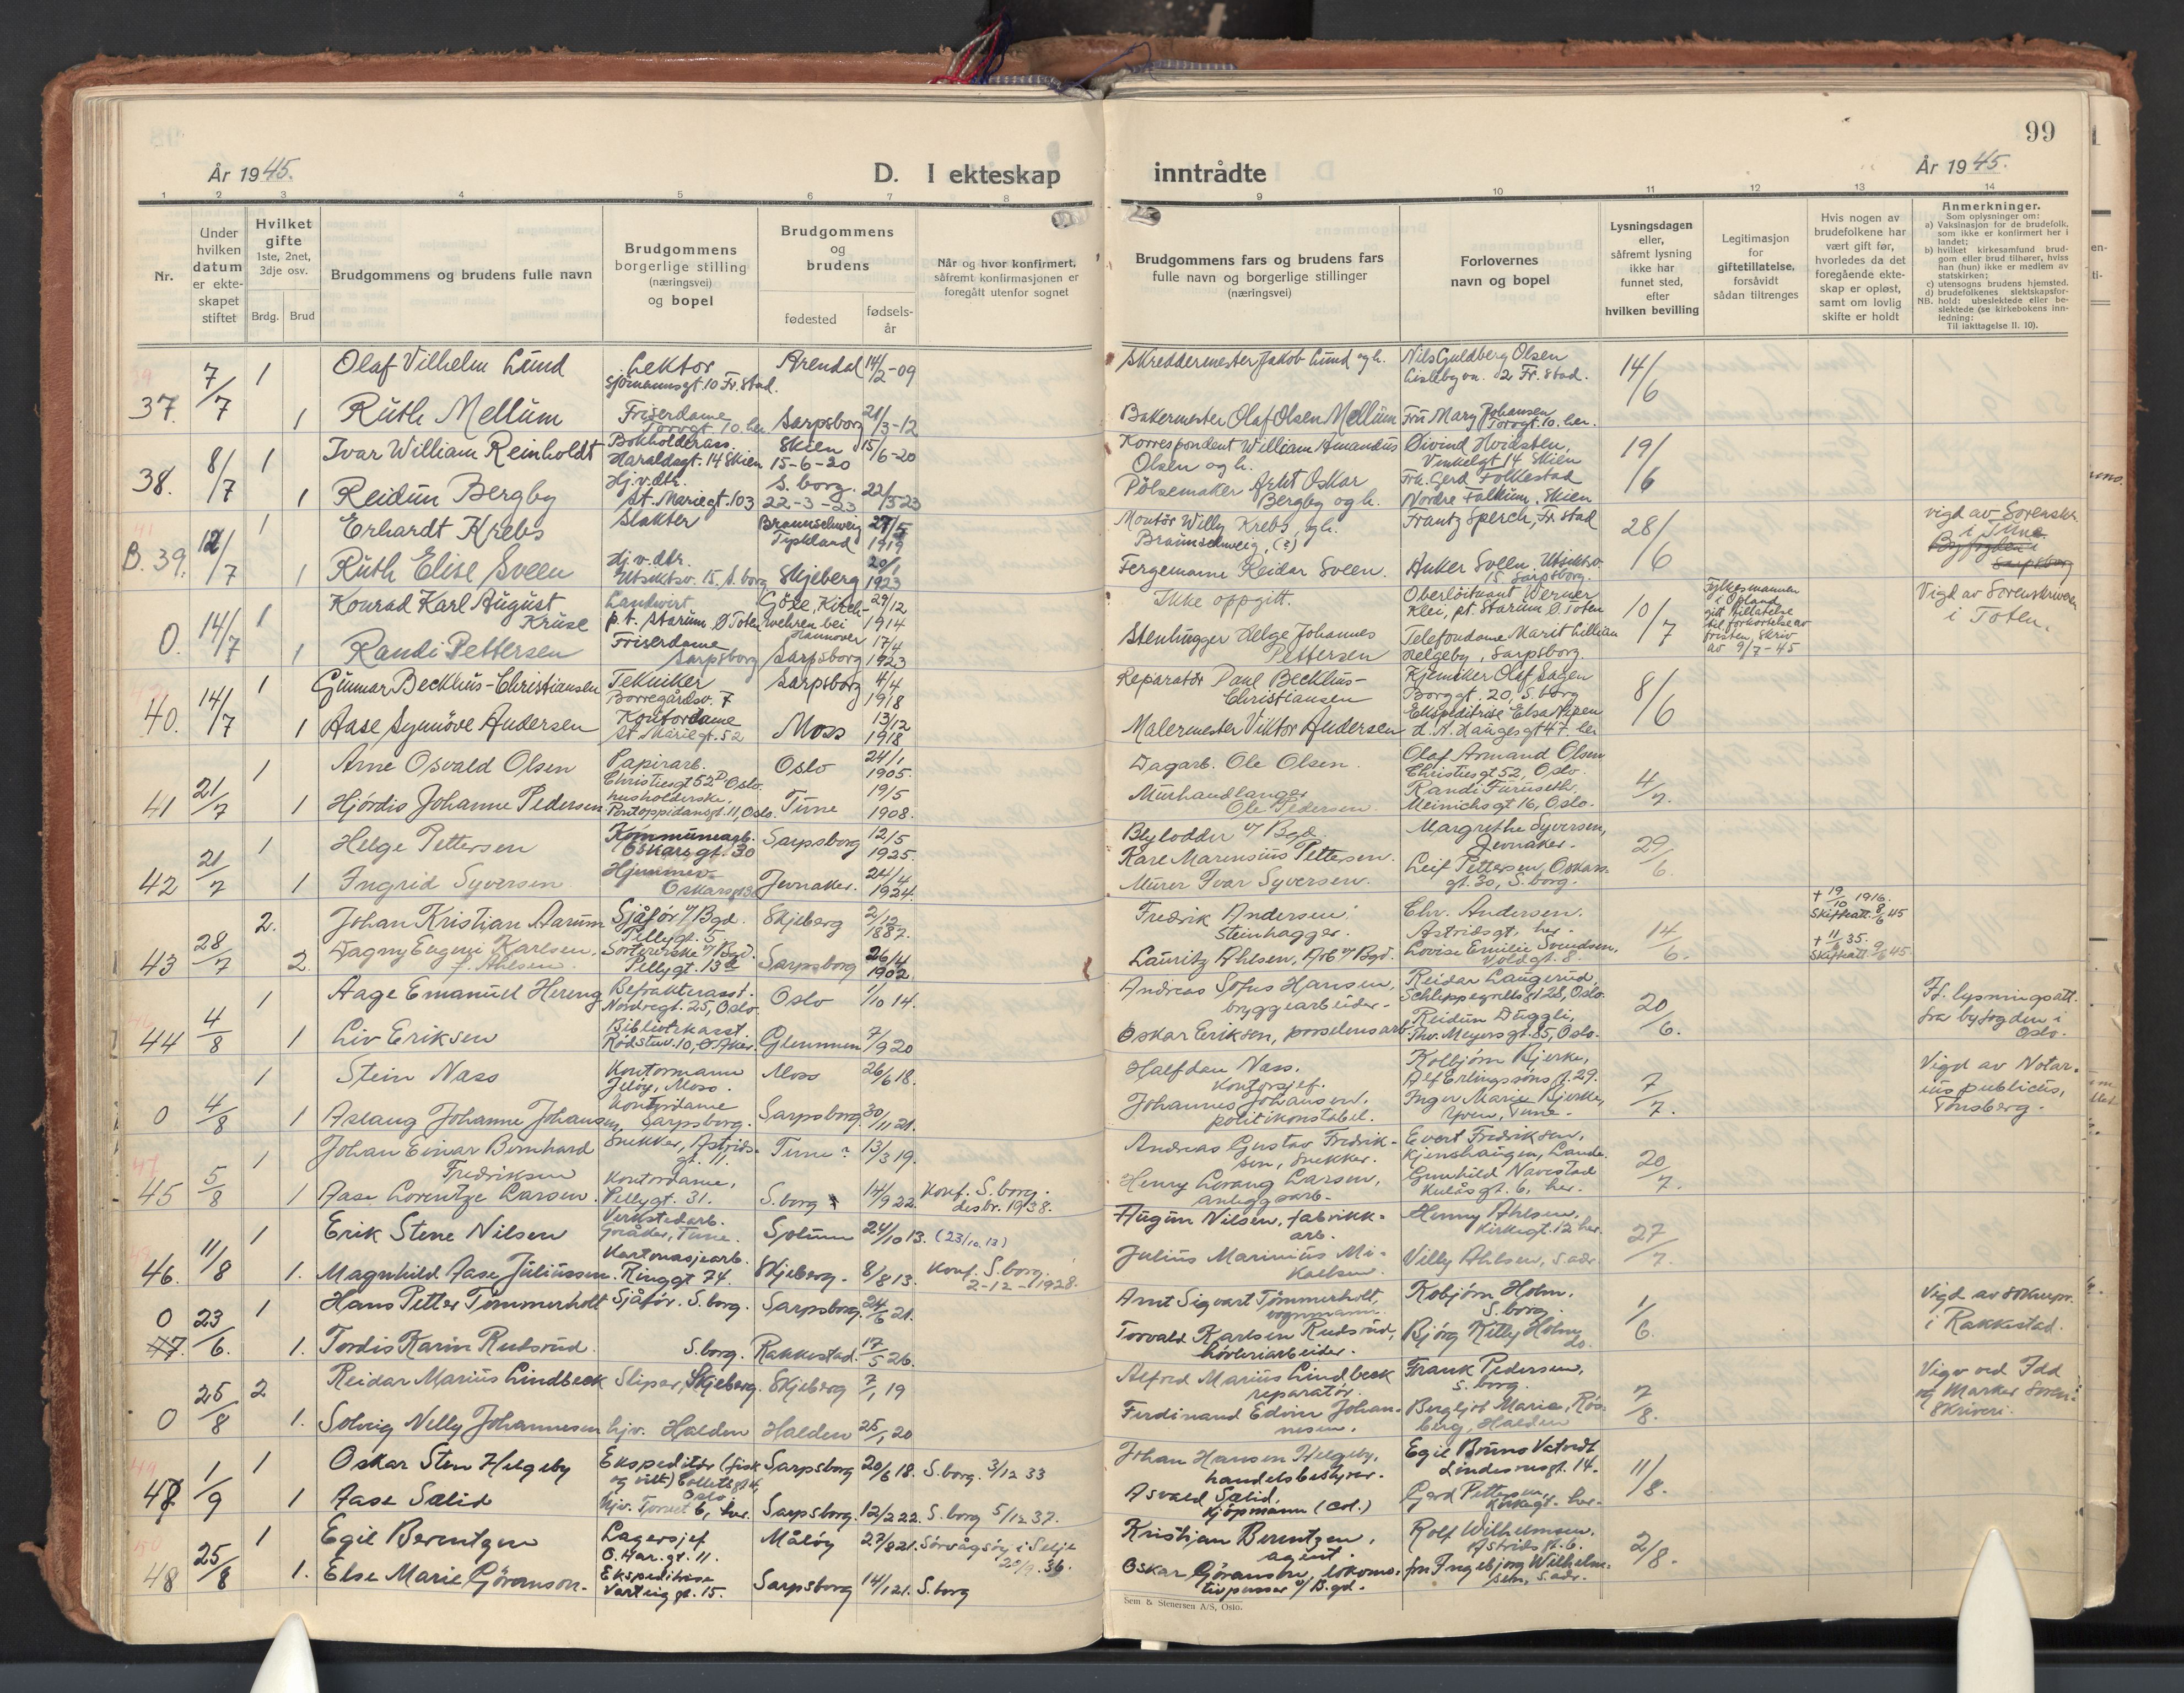 99
År 1945.
D. I ekteskap inntrådte
År 1945.
1 2 3 4 5 6 7 8 9 10 11 12 13 14
Nr.
Under hvilken datum er ekte-skapet stiftet
Hvilket gifte 1ste, 2net, 3dje osv.
Brdg. Brud
Brudgommens og brudens fulle navn
Brudgommens borgerlige stilling (næringsvei) og bopel
Brudgommens og brudens
fødested
fødsels-år
Når og hvor konfirmert, såfremt konfirmasjonen er foregått utenfor sognet
Brudgommens fars og brudens fars fulle navn og borgerlige stillinger (næringsvei)
Forlovernes navn og bopel
Lysningsdagen eller, såfremt lysning ikke har funnet sted, efter hvilken bevilling
Legitimasjon for giftetillatelse, forsåvidt sådan tiltrenges
Hvis nogen av brudefolkene har vært gift før, hvorledes da det foregående ekte-skap er opløst, samt om lovlig skifte er holdt
Anmerkninger.
Som oplysninger om:
a) Vaksinasjon for de brudefolk, som ikke er konfirmert her i landet;
b) hvilket kirkesamfund brud-gom eller brud tilhører, hviss han (hun) ikke er medlem av statskirken;
c) utensogns brudens hjemsted.
d) brudefolkenes slektskapsfor-
NB. hold: ubeslektede eller be-slektede (se kirkebokens inn-ledning:
Til iakttagelse II. 10).
37. 7/7 1 Olaf Vilhelm Lund Lektor Sjømannsgt. 10 Fr.stad. Arendal 14/2-09 Skreddermester Jakob Lund og h. Nils Guldberg Olsen Lislebyvn. 2 Fr.stad. 14/6
1 Ruth Mellum Friserdame Torvgt. 10. her Sarpsborg 21/3-12 Bakermester Olaf Olsen Mellum Fru Mary Johansen Torvgt. 10. her.
38. 8/7 1 Ivar William Reinholdt Bokholderass. Haraldsgt. 14 Skien Skien 15-6-20 15/6-20 Korrespondent William Amandus Olsen og h. Øivind Hvidsten, Vinkelgt 14 Skien 19/6
1 Reidun Bergby Hj.v.dtr. St. Mariegt. 103 S.borg. 22-3-23 Pølsemaker Arnt Oskar Bergby og h. Frk. Gerd Folkestad Nordre Falkum, Skien
B. 39. 12/7 1 Erhardt Krebs Slakter Braunschweig Tyskland 27/5 1919 Montör Willy Krebs, og h. Braunschweig, (?) Frantz Sperch, Fr.stad 28/6 vigd av Sorenskr. i Tune. Byfogden i Sarpsborg
1 Ruth Elise Sveen Hj.v.dtr. Utsiktsv. 15, S.borg Skjeberg 20/1 1923 Fergemann Reidar Sveen. Anker Sveen, Utsiktsv. 15 Sarpsborg.
0. 14/7 1 Konrad Karl August Kruse Landwirt p.t. Starum Ø Toten Kirch-wehren bei Hannover 29/12 1914 Ikke oppgitt. Oberlöitnant Werner Klei, pt. Starum Ø Toten 10/7 Fylkesmannen i Opland gitt tillatelse til forkortelse av fristen, skriv av 9/7-45 Vigd av Sorenskriveren i Toten.
1 Randi Pettersen Friserdame Sarpsborg Sarpsborg 17/4 1923 Stenhugger Helge Johannes Pettersen Telefondame Marit Lillian Helgeby, Sarpsborg.
40. 14/7 1 Gunnar Beckhus-Christiansen Tekniker Borregårdsv. 7 Sarpsborg 4/4 1918 Reparatør Paul Beckhus-Christiansen Kjemiker Olaf Sagen Borggt. 20, S.borg 8/6
1 Aase Synnöve Andersen Kontordame St. Mariegt. 52 Moss 13/12 1918 Malermester Viktor Andersen Ekspeditrise Elsa Nipen H. N. Haugesgt 47. her
41 21/7 1 Arne Osvald Olsen Papirarb. Christiesgt 52D Oslo. Oslo 24/1 1905. Dagarb. Ole Olsen. Olaf Armand Olsen Christiesgt 52, Oslo. 4/7.
1 Hjørdis Johanne Pedersen husholderske, Pontoppidansgt. 11, Oslo. Tune 19/5 1908. Murhandlanger Ole Pedersen. Randi Furuseth. Meinichsgt 16, Oslo.
42 21/7 1 Helge Pettersen Kommunearb. Oskarsgt. 30 Sarpsborg 12/5 1925. Blylodder v/ Bgd. Karl Marensius Pettersen. Margrethe Syversen, Jevnaker. 29/6
1 Ingrid Syversen Hjemmev. Oskarsgt 30 Jevnaker. 24/4 1924. Murer Ivar Syversen. Leif Pettersen, Oskars-gt. 30, S.borg.
43 28/7 2. Johan Kristian Aarum Sjåfør v/ Bgd. Pellygt. 5. Skjeberg 2/12 1887. Fredrik Andersen, Steinhugger. Chr. Andersen. Astridsgt, her. 14/6. + 19/10 1916. Skifteatt. 8/6 45
2 Dagny Eugeni Karlsen, f. Ahlsen. Sortererske v/ Bgd. Pellygt. 13 Sarpsborg 26/4 1902. Lauritz Ahlsen, Arb v/ Bgd. Lovise Emilie Svendsen, Voldgt. 8. + 35. Skifteatt. 9/6 45
44 4/8 1 Aage Emanuel Hereng Befrakterasst. Nordregt. 25, Oslo. Oslo 1/10 14. Andreas Sofus Hansen, bryggearbeider. Reidar Laugerud, Schleppegrells gt 28, Oslo. 20/6. Jf. lysningsatt. fra byfogden i Oslo.
1 Liv Eriksen Bibliotekasst. Glemmen 7/9 20 Oskar Eriksen, porselensarb. Reidun Duggli, Thv. Meyersgt. 85, Oslo.
0 4/8 1 Stein Nass Kontormann Jeløy, Moss. Moss 26/6 18. Halfdan Nass. kontorsjef. Kolbjørn Bjerke, Alf Erlingssøns g. 29. 7/7. Vigd av Notar-ius publicus, Tønsberg.
1 Aslaug Johanne Johansen, Kontordame Sarpsborg. Sarpsborg. 30/11 21. Johannes Johansen, politikonstabel. Inger Marie Bjerke, Yven, Tune.
45 5/8 1 Johan Einar Bernhard Fredriksen Snekker, Astrids-gt. 11. Tune? 13/3 19. Andreas Gustav Fredrik-sen, snekker. Evert Fredriksen, 20/7.
1 Aase Lorentze Larsen. Kontordame, Pellygt. 31. S.borg 14/9 22. Konf. S.borg. desbr. 1938. Henry Lorang Larsen, anleggsarb. Gunhild Navestad Kulåsgt. 6, her.
46. 11/8 1 Erik Stene Nilsen Verkstedarb. Gråker, Tune. Solum 24/10 13. (23/10.13) Augun Nilsen, fabrikk-arb. Henny Ahlsen, Kirkegt. 12 her. 27/7.
1. Magnhild Aase Juliussen. Kartonasjearb. Ringgt 74. Skjeberg. 8/8 13. Konf. S.borg. 2-12-1928. Julius Marinius Mi-kaelsen. Villy Ahlsen, s.adr.
0 47. 23/6. 1 Hans Petter Tømmerholt Sjåfør. S.borg. Sarpsborg. 24/6 21. Arnt Sigvart Tømmerholt, vognmann. Kobjörn Holm, S.borg. 1/6. Vigd av sokнepr. i Rakkestad.
1. Tordis Karin Rudsrud. S.borg. Rakkestad. 17/5 26. Torvald Karlsen Rudsrud, høvleriarbeider. Bjørg Kitty Holm, do.
0 25/8 2 Reidar Marius Lindbeck Sliper, Skjeberg. Skjeberg 7/1 19 Alfred Marius Lindbeck reparatør. Frank Pedersen, S.borg. 7/8. Vigd ved Idd og Marker Soren-skriveri.
1. Solveig Nelly Johannesen hjv. Halden Halden 25/1 20 Ferdinand Edvin Johan-nesen. Bergljot Marie, Røs-berg, Halden
47 1/9 1 Oskar Sten Helgeby Ekspeditør (fisk og vilt) Oslo. Sarpsborg 20/6 18. S.borg. 3/12 33 Johan Hansen Helgeby, handelsbestyrer. Egil Bruno Vatvedt Lindesnesgt. 14. 11/8.
1 Aase Sælid hjv. Torvet 6, her. Sarpsborg. 12/2 22. S.borg 5/12 37. Asvald Sælid, kjøpmann (col.) Gerd Pettersen, Kirkegt. her.
48 25/8 1 Egil Berentzen Lagersjef O. Har. gt. 11. Måløy 27/8 21. Sørvågsøy i Selje 20/9. 36. Kristian Berentzen, agent. Rolf Wilhelmsen. Astridsgt. 6. 2/8.
1. Else Marie Göranson. Ekspeditrise Varteiggt. 15. Sarpsborg 14/1 21. S.borg Oskar Göranson, lokomo-tivpusser v/ B.gd. fru Ingebjørg Wilhelm-sen, s.adr.
Sem & Stenersen A/S, Oslo.